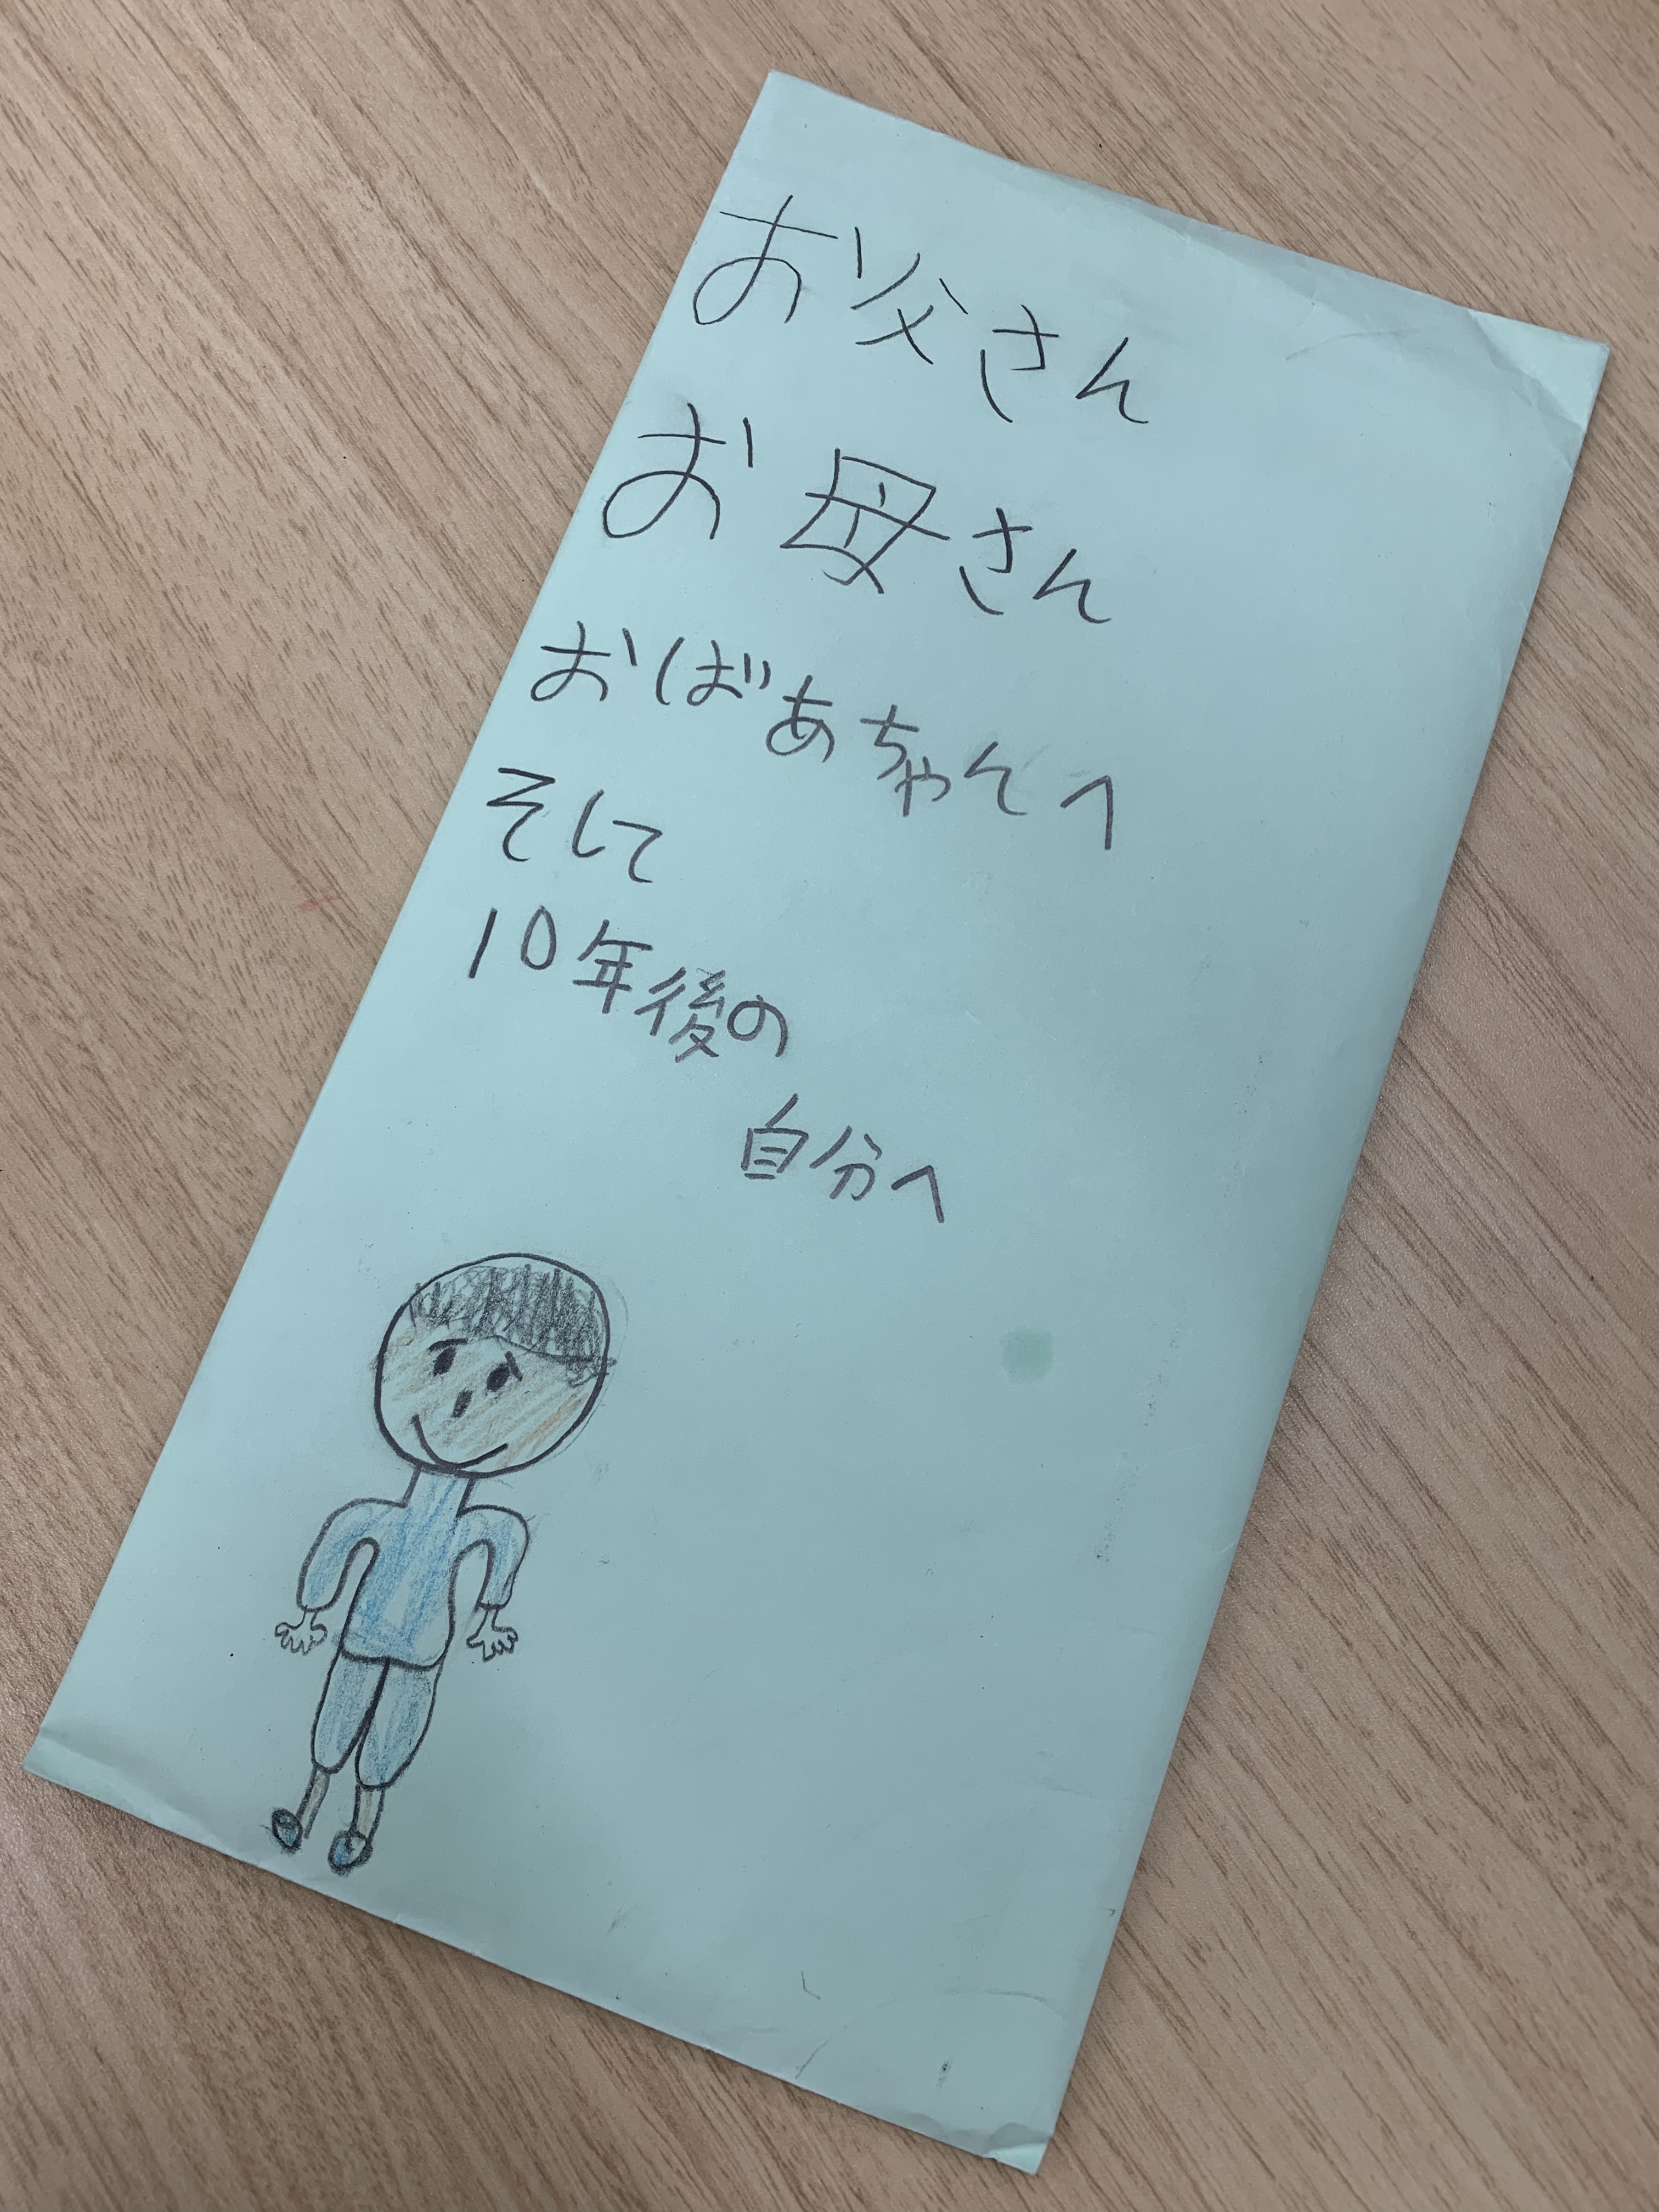 お父さん
お母さん
おばあちゃんへ
そして
10年後の
自分へ